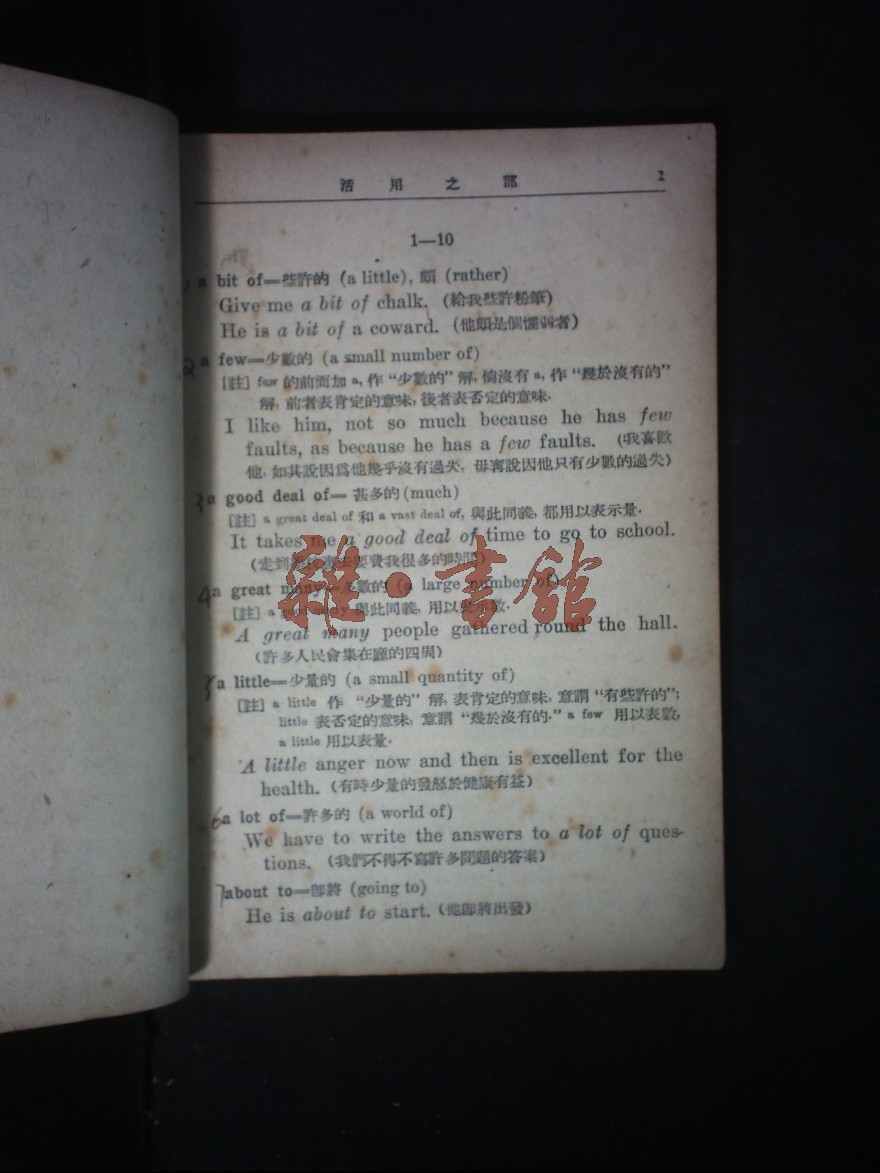 活用之部 1
1—10
1 a bit of=些許的 (a little), 頗 (rather)
Give me a bit of chalk. (給我些許粉筆)
He is a bit of a coward. (他頗是個懦弱者)
2 a few=少數的 (a small number of)
[註] few 的前面加 a, 作 “少數的” 解, 倘沒有 a, 作 “幾於沒有的”
解, 前者表肯定的意味, 後者表否定的意味.
I like him, not so much because he has few
faults, as because he has a few faults. (我喜歡
他, 如其說因爲他幾乎沒有過失, 毋寧說因他只有少數的過失)
3 a good deal of= 甚多的 (much)
[註] a great deal of 和 a vast deal of, 與此同義, 都用以表示量.
It takes me a good deal of time to go to school.
(走到 要費我很多的時間)
4 a great many=多數的 (a large number of)
[註] a good many 與此同義, 用以表示數.
A great many people gathered round the hall.
(許多人民會集在廳的四周)
5 a little=少量的 (a small quantity of)
[註] a little 作 “少量的” 解, 表肯定的意味, 意謂 “有些許的”;
little 表否定的意味, 意謂 “幾於沒有的.” a few 用以表數,
a little 用以表量.
A little anger now and then is excellent for the
health. (有時少量的發怒於健康有益)
6 a lot of=許多的 (a world of)
We have to write the answers to a lot of ques-
tions. (我們不得不寫許多問題的答案)
7 about to=卽將 (going to)
He is about to start. (他卽將出發)
雜·書館